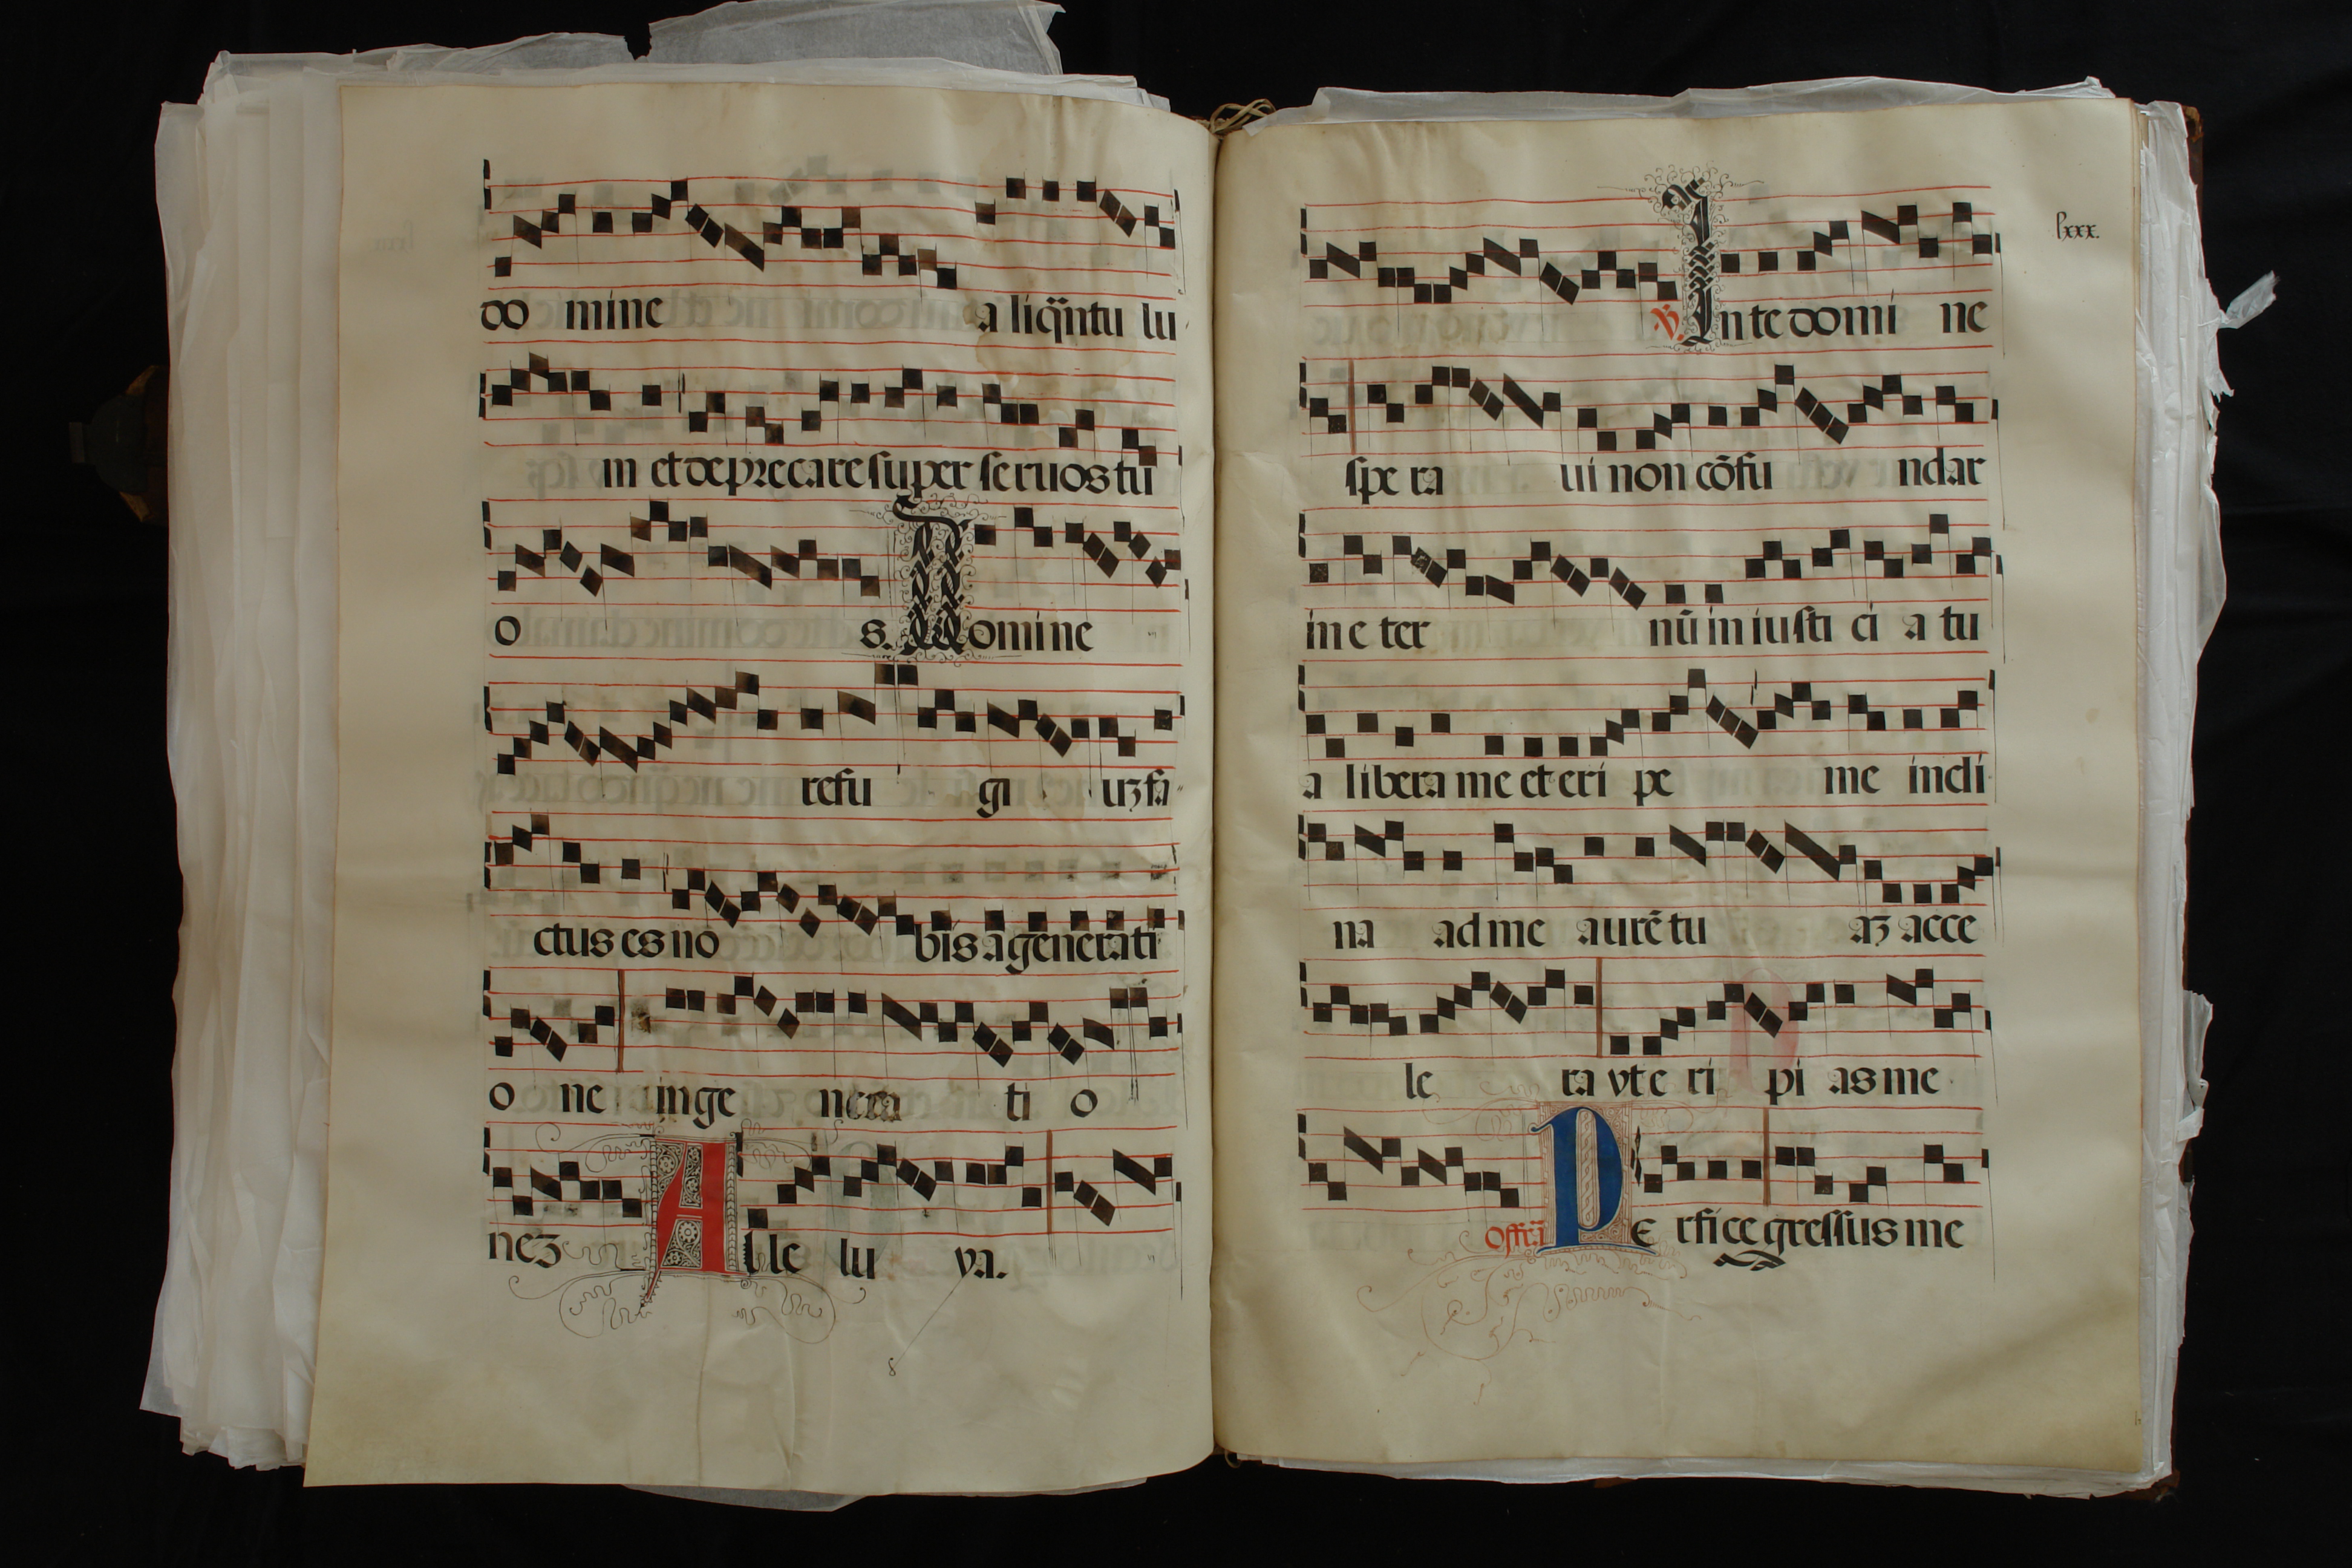 do mine a liq̃ntu lu
m et deprecare super seruos tu
o s. Domine
refu gi uʒ fa
ctus es no bis a generati
o ne in ge nera ti o
neʒ Alle lu ya.
lxxx.
℣. In te domi ne
spe ra ui non cõfu ndar
in e ter nũ in iusti ci a tu
a libera me et eri pe me incli
na ad me aurẽ tu aʒ acce
le ra vt e ri pi as me
Offr̃i Pe rfice gressus me